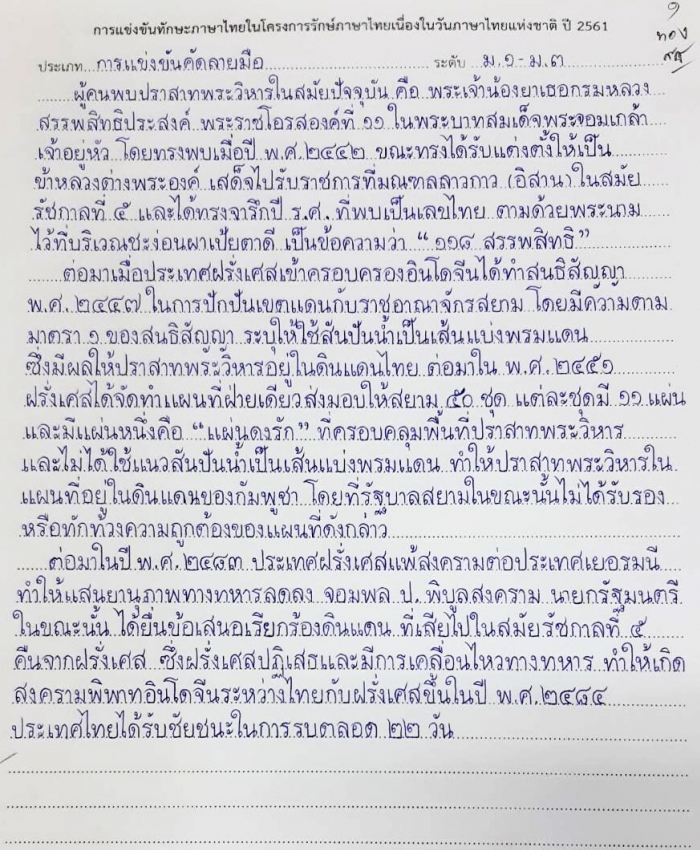 การแข่งขันทักษะภาษาไทยในโครงการรักษ์ภาษาไทยเนื่องในวันภาษาไทยแห่งชาติ ปี 2561
๑
ทอง
ประเภท การแข่งขันคัดลายมือ ระดับ ม.๑-ม.๓
ผู้คนพบปราสาทพระวิหารในสมัยปัจจุบัน คือ พระเจ้าน้องยาเธอกรมหลวง
สรรพสิทธิประสงค์ พระราชโอรสองค์ที่ ๑๑ ในพระบาทสมเด็จพระจอมเกล้า
เจ้าอยู่หัว โดยทรงพบเมื่อปี พ.ศ.๒๔๔๒ ขณะทรงได้รับแต่งตั้งให้เป็น
ข้าหลวงต่างพระองค์ เสด็จไปรับราชการที่มณฑลลาวกาว (อิสาน) ในสมัย
รัชกาลที่ ๕ และได้ทรงจารึกปี ร.ศ. ที่พบเป็นเลขไทย ตามด้วยพระนาม
ไว้ที่บริเวณชะง่อนผาเป้ยตาดี เป็นข้อความว่า “ ๑๑๘ สรรพสิทธิ ”
ต่อมาเมื่อประเทศฝรั่งเศสเข้าครอบครองอินโดจีนได้ทำสนธิสัญญา
พ.ศ. ๒๔๔๗ ในการปักปันเขตแดนกับราชอาณาจักรสยาม โดยมีความตาม
มาตรา ๑ ของสนธิสัญญา ระบุให้ใช้สันปันน้ำเป็นเส้นแบ่งพรมแดน
ซึ่งมีผลให้ปราสาทพระวิหารอยู่ในดินแดนไทย ต่อมาใน พ.ศ. ๒๔๕๑
ฝรั่งเศสได้จัดทำแผนที่ฝ่ายเดียวส่งมอบให้สยาม ๕๐ ชุด แต่ละชุดมี ๑๑ แผ่น
และมีแผ่นหนึ่งคือ “แผ่นดงรัก” ที่ครอบคลุมพื้นที่ปราสาทพระวิหาร
และไม่ได้ใช้แนวสันปันน้ำเป็นเส้นแบ่งพรมแดน ทำให้ปราสาทพระวิหารใน
แผนที่อยู่ในดินแดนของกัมพูชา โดยที่รัฐบาลสยามในขณะนั้นไม่ได้รับรอง
หรือทักท้วงความถูกต้องของแผนที่ดังกล่าว
ต่อมาในปี พ.ศ. ๒๔๘๓ ประเทศฝรั่งเศสแพ้สงครามต่อประเทศเยอรมนี
ทำให้แสนยานุภาพทางทหารลดลง จอมพล ป. พิบูลสงคราม นายกรัฐมนตรี
ในขณะนั้น ได้ยื่นข้อเสนอเรียกร้องดินแดน ที่เสียไปในสมัยรัชกาลที่ ๕
คืนจากฝรั่งเศส ซึ่งฝรั่งเศสปฏิเสธและมีการเคลื่อนไหวทางทหาร ทำให้เกิด
สงครามพิพาทอินโดจีนระหว่างไทยกับฝรั่งเศสขึ้นในปี พ.ศ.๒๔๘๔
ประเทศไทยได้รับชัยชนะในการรบตลอด ๒๒ วัน